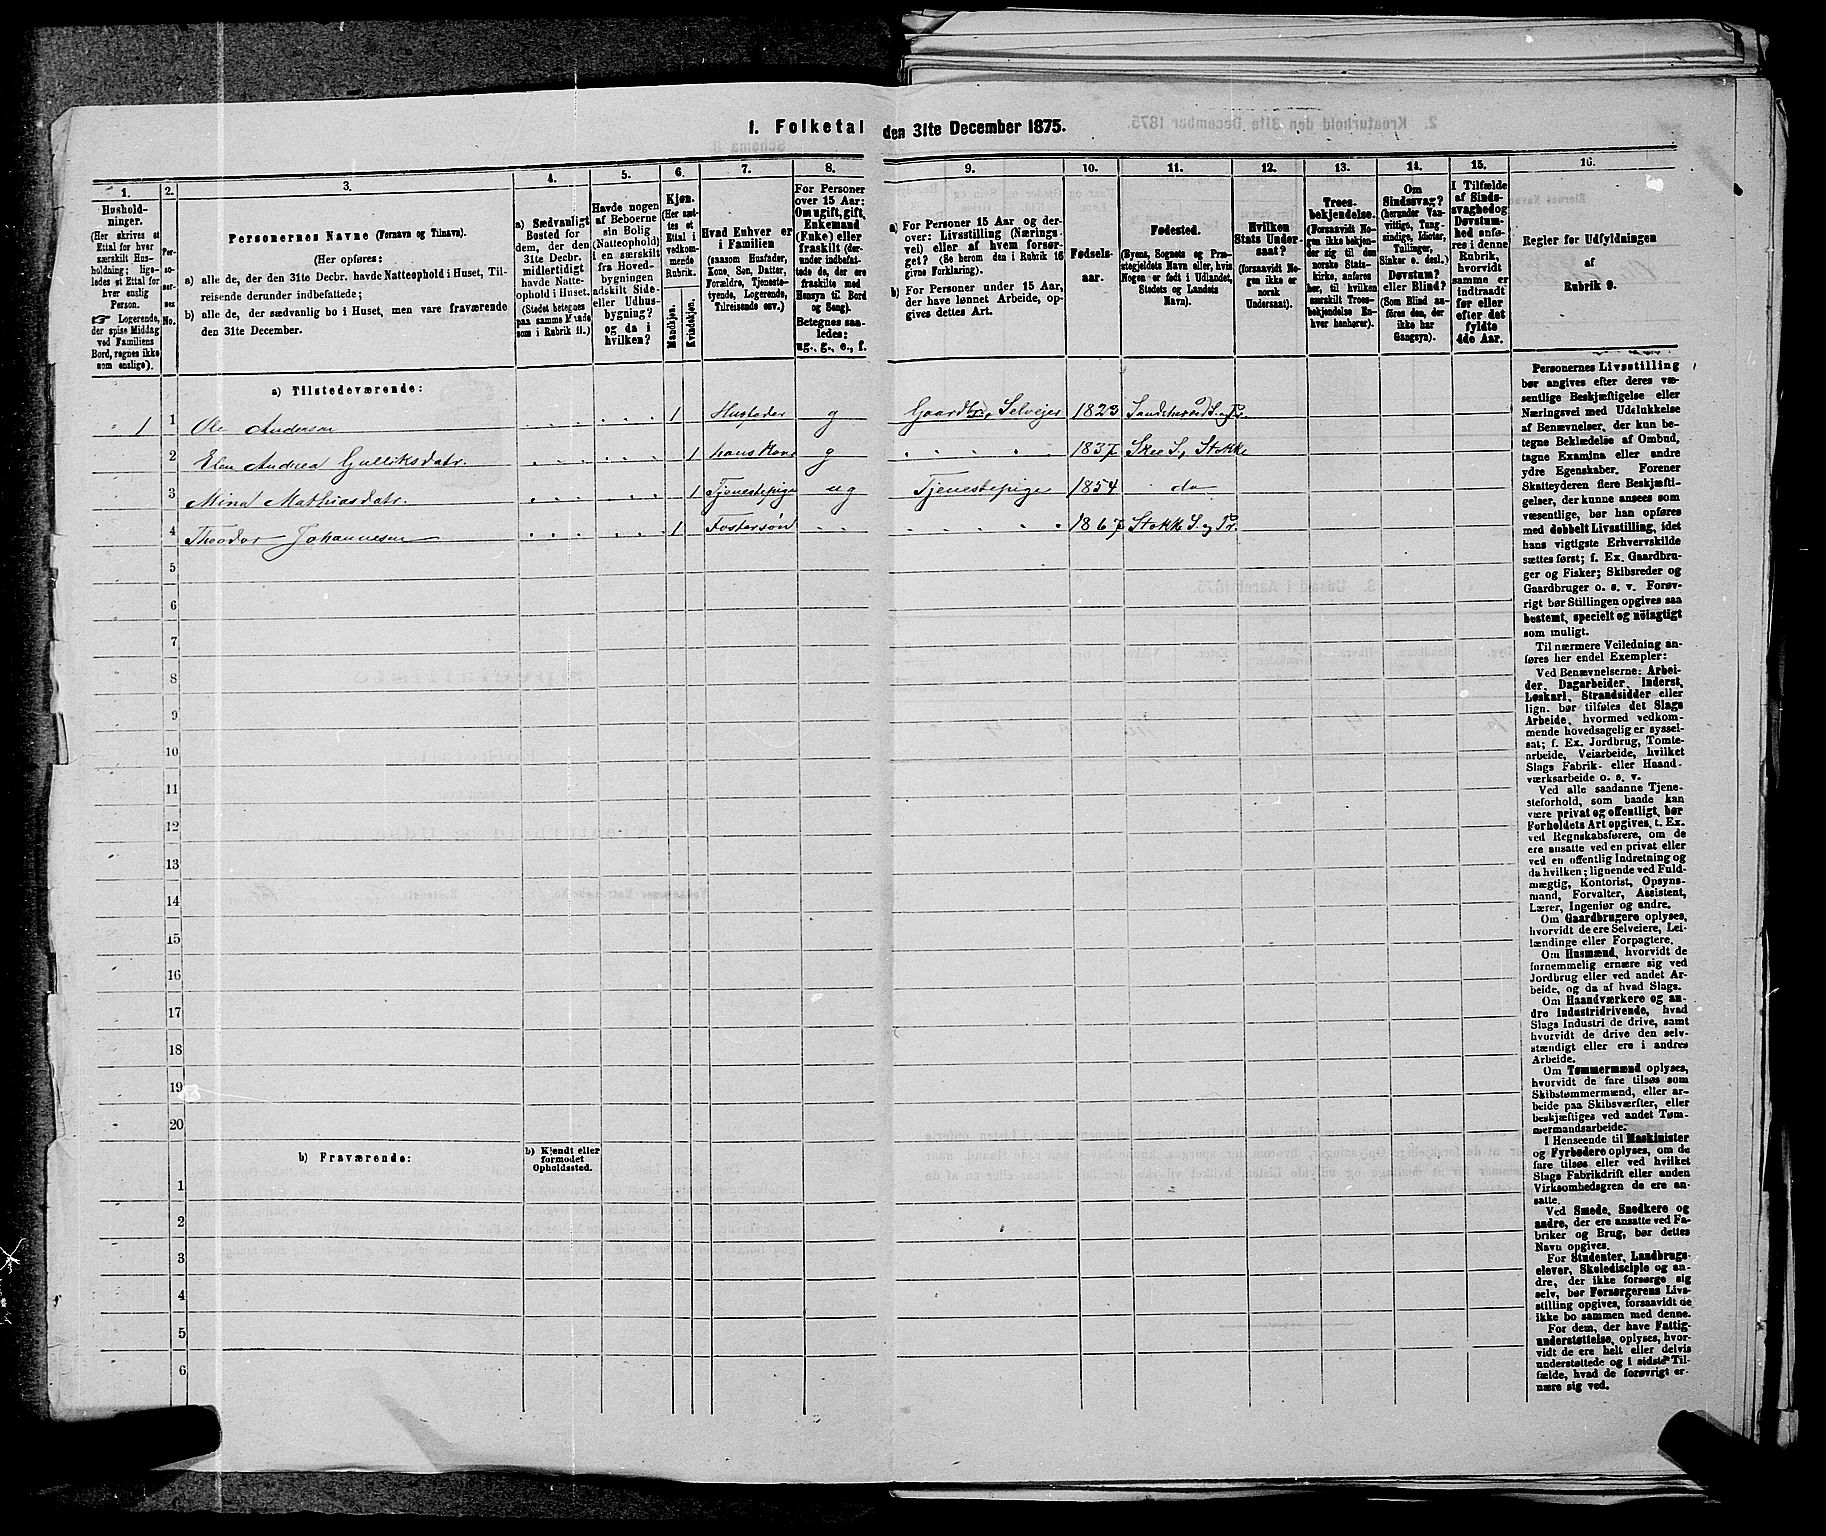 1. Folketal den 31te December 1875.
1.
Husholdninger.
(Her skrives et
Ettal for hver
særskilt Husholdning;
ligeledes et Ettal for
hver enslig
Person.
Logerende,
der spise Middag
ved Familiens
Bord, regnes ikke
som enslige).
2.
Personernes No.
3.
Personernes Navne (Fornavn og Tilnavn).
(Her opføres:
a) alle de, der den 31te Decbr. havde Natteophold i Huset, Tilreisende
derunder indbefattede;
b) alle de, der sædvanlig bo i Huset, men vare fraværende
den 31te December.
4.
a) Sædvanligt
Bosted for
dem, der den
31te Decbr.
midlertidigt
havde Natteophold
i Huset.
(Stedet betegnes
paa samme Maade
som i Rubrik 11.)
5.
Havde nogen
af Beboerne
sin Bolig
(Natteophold)
i en særskilt
fra Hovedbygningen
adskilt Side-
eller Udhusbygning?
og da i
hvilken?
6.
Kjøn.
(Her sættes
et
Ettal i
vedkommende
Rubrik.
Mandkjøn.
Kvindekjøn.
7.
Hvad Enhver er
i Familien
(saasom Husfader,
Kone, Søn, Datter,
Forældre, Tjenestetyende,
Logerende,
Tilreisende osv.)
8.
For Personer
over 15 Aar:
Om ugift, gift,
Enkemand
(Enke) eller
fraskilt (derunder
indbefattede
de, der ere
fraskilte med
Hensyn til Bord
og Seng).
Betegnes saaledes:
ug., g., e., f.
9.
a) For Personer 15 Aar og derover:
Livsstilling (Næringsvei)
eller af hvem forsørget?
(Se herom den i Rubrik 16
givne Forklaring).
b) For Personer under 15 Aar,
der have lønnet Arbeide, opgives
dettes Art.
10.
Fødselsaar.
11.
Fødested.
(Byens, Sognets og Præstegjeldets
Navn eller, hvis
Nogen er født i Udlandet,
Stedets og Landets
Navn).
12.
Hvilken
Stats Undersaat?
(forsaavidt Nogen
ikke er
norsk
Undersaat).
13.
Troesbekjendelse.
(Forsaavidt Nogen
ikke bekjender
sig til den
norske Statskirke,
anføres
her, til hvilken
særskilt Troesbekjendelse
Enhver
henhører).
14.
Om
Sindssvag?
(herunder Vanvittige,
Tungsindige,
Idioter,
Tullinger,
Sinker o. desl.)
Døvstum?
eller Blind?
(Som Blind anføres
den, der
ikke har
Gangsyn).
15.
I Tilfælde
af Sindssvaghed
og
Døvstumhed
anføres
i denne
Rubrik,
hvorvidt
samme er
indtraadt
før eller
efter det
fyldte
4de Aar.
16.
Regler for Udfyldningen
af
Rubrik 9.
a) Tilstedeværende:
1 1 Ole Andersen 1 Husfader g Gaardbr., Selvejer 1823
2 Elen Andrea Gulliksdatr. 1 hans Kone g 1837 Skee S., Stokke
3 Mina Mathiasdatr. 1 Tjenestepige ug Tjenestepige 1854 do
4 Theodor Johannesen 1 Fostersøn 1867 Stokke S. og Pr.
5
6
7
8
9
10
11
12
13
14
15
16
17
18
19
20
b) Fraværende:
b) Kjendt eller
formodet
Opholdssted.
1
2
3
4
5
6
Personernes Livsstilling
bør angives efter deres væsentlige
Beskjæftigelse eller
Næringsvei med Udelukkelse
af Benævnelser, der kun betegne
Beklædelse af Ombud,
tagne Examina eller andre
ydre Egenskaber. Forener
Skatteyderen flere Beskjæftigelser,
der kunne ansees som
væsentlige, bør han opføres
med dobbelt Livsstilling, idet
hans vigtigste Erhvervskilde
sættes først; f. Ex. Gaardbruger
og Fisker; Skibsreder og
Gaardbruger o. s. v. Forøvrigt
bør Stillingen opgives saa
bestemt, specielt og nöiagtigt
som muligt.
Til nærmere Veiledning anføres
her endel Exempler:
Ved Benævnelserne: Arbeider,
Dagarbeider, Inderst,
Løskarl, Strandsidder eller
lign. bør tilføies det Slags
Arbeide, hvormed vedkommende
hovedsagelig er sysselsat;
f. Ex. Jordbrug, Tomtearbeide,
Veiarbeide, hvilket
Slags Fabrik- eller Haandværksarbeide
o. s. v.
Ved alle saadanne Tjenesteforhold,
som baade kan
være privat og offentligt, bør
Forholdets Art opgives, t. Ex.
ved Regnskabsførere, om de
ere ansatte ved en privat eller
ved en offentlig Indretning og
da hvilken; lignende ved Fuldmægtig,
Kontorist, Opsynsmand,
Forvalter, Assistent,
Lærer, Ingeniør og andre.
Om Gaardbrugere oplyses,
hvorvidt de ere Selveiere, Leilændinge
eller Forpagtere.
Om Husmænd, hvorvidt de
fornemmelig ernære sig ved
Jordbrug eller ved andet Arbeide,
og da af hvad Slags.
Om Haandværkere og andre
industridrivende, hvad
Slags Industri de drive, samt
hvorvidt de drive den selvstændigt
eller ere i andres
Arbeide.
Om Tømmermænd oplyses,
hvorvidt de fare tilsøs som
Skibstømmermænd, eller arbeide
paa Skibsværfter, eller
beskjæftiges ved andet Tømmermandsarbeide.
I Henseende til Maskinister
og Fyrbødere oplyses, om de
fare tilsøs eller ved hvilket
Slags Fabrikdrift eller anden
Virksomhedsgren de ere ansatte.
Ved Smede, Snedkere og
andre, der ere ansatte ved Fabriker
og Brug, bør dettes
Navn opgives.
For Studenter, Landbrugselever,
Skoledisciple og andre,
der ikke forsørge sig
selv, bør Forsørgerens Livsstilling
opgives, forsaavidt de
ikke bo sammen med denne.
For dem, der have Fattigunderstøttelse,
oplyses, hvorvidt
de ere helt eller delvis
understøttede og i sidste Tilfælde,
hvad de forøvrigt ernære
sig ved.